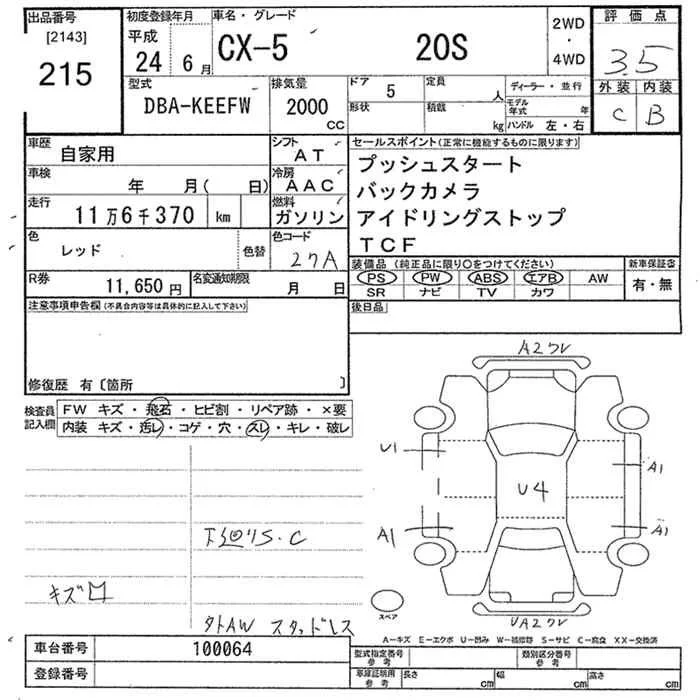 出品番号
[2143]
215
初度登録年月
平成
24 6 月
車名・グレード
CX-5 20S
2WD
・
4WD
評価点
3.5
外装 内装
C B
型式
DBA-KEEFW
排気量
2000
CC
ドア
5
定員
人
形状
積載
kg
ディーラー・並行
モデル年式 年
ハンドル 左・右
車歴
自家用
シフト
AT
車検
年 月( 日)
冷房
AAC
走行
11万6千370 km
燃料
ガソリン
色
レッド
色替
色コード
27A
R券
11,650 円
名変通知期限
月 日
セールスポイント(正常に機能するものに限ります)
プッシュスタート
バックカメラ
アイドリングストップ
TCF
装備品 (純正品に限り○をつけてください)
PS PW ABS エアB AW
SR ナビ TV カワ
新車保証書
有・無
後日品
注意事項申告欄(不具合内容等は具体的に記入して下さい)
修復歴 有〔箇所 〕
検査員
記入欄
FW キズ・飛石・ヒビ割・リペア跡・×要
内装 キズ・汚レ・コゲ・穴・スレ・キレ・破レ
下廻りS.C
キズ
外AW スタッドレス
A2ワレ
U1
A1
U4
A1
A1
UA2ワレ
スペア
A−キズ E−エクボ U−凹み W−補修跡 S−サビ C−腐食 XX−交換済
車台番号
100064
登録番号
型式指定番号
参考
類別区分番号
参考
車庫証明用
参考
長さ
cm
幅
cm
高さ
cm